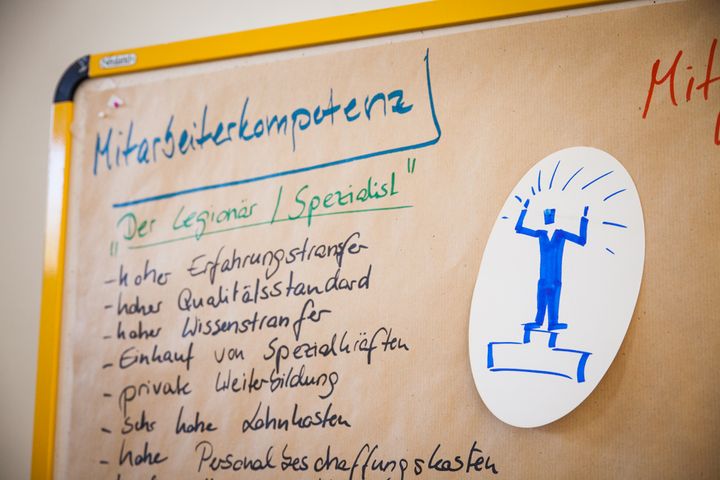 Mitarbeiterkompetenz
"Der Legionär / Spezialist"
- hoher Erfahrungstransfer
- hoher Qualitätsstandard
- hoher Wissenstransfer
- Einkauf von Spezialkräften
- private Weiterbildung
- Sehr hohe Lohnkosten
- hohe Personalbeschaffungskosten
Mit